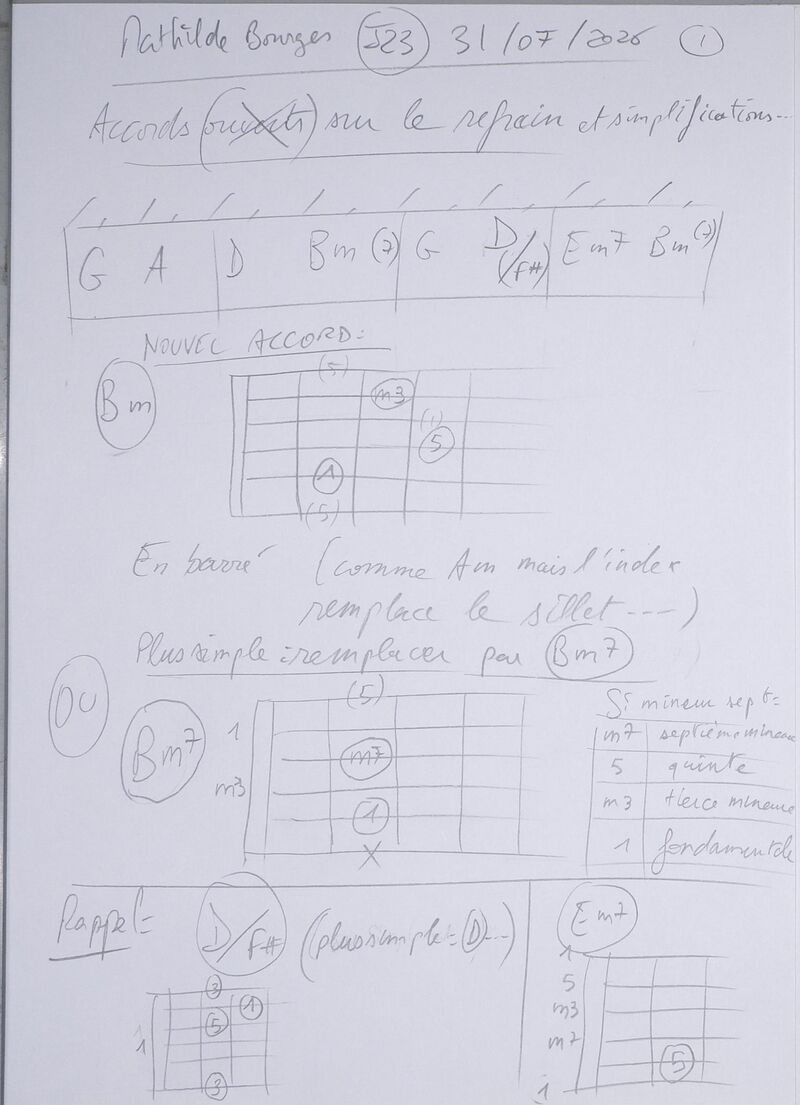 Mathilde Bourges J23 31/07/2026 1
Accords (ouverts) sur le refrain et simplifications...
G A D Bm (7) G D/(F#) Em7 Bm(7)
NOUVEL ACCORD:
Bm
(5)
m3
(1)
5
1
(5)
En barré (comme Am mais l'index
remplace le sillet ----)
Plus simple: remplacer par Bm7
OU
Bm7
(5)
1
m7
m3
1
X
Si mineur sept=
m7 septième mineure
5 quinte
m3 tierce mineure
1 fondamentale
Rappel=
D/F# (plus simple= D...)
3
1
5
1
3
Em7
1
5
m3
m7
5
1